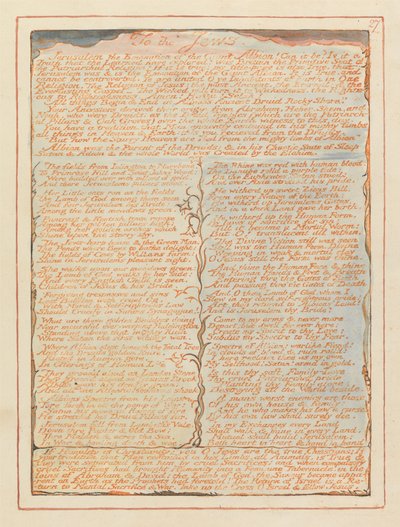 27
To the Jews.
Jerusalem the Emanation of the Giant Albion! Can it be? Is it a
Truth that the Learned have explored? Was Britain the Primitive Seat of
the Patriarchal Religion? If it is true: my title-page is also True, that
Jerusalem was & is the Emanation of the Giant Albion. It is True, and
cannot be controverted. Ye are united O ye Inhabitants of Earth in One
Religion. The Religion of Jesus: the most Ancient, the Eternal: & the
Everlasting Gospel. The Wicked will turn it to Wickedness, the Righte-
ous to Righteousness. Amen! Huzza! Selah!
All things Begin & End in Albions Ancient Druid Rocky Shore.
Your Ancestors derived their origin from Abraham, Heber, Shem, and
Noah, who were Druids: as the Druid Temples (which are the Patriarchal
Pillars & Oak Groves) over the whole Earth witness to this day.
You have a tradition, that Man anciently containd in his mighty limbs
all things in Heaven & Earth: this you recieved from the Druids.
But now the Starry Heavens are fled from the mighty limbs of Albion
Albion was the Parent of the Druids; & in his Chaotic State of Sleep
Satan & Adam & the whole World was Created by the Elohim.
The fields from Islington to Marybone,
To Primrose Hill and Saint Johns Wood:
Were builded over with pillars of gold,
And there Jerusalems pillars stood.
Her Little-ones ran on the fields
The Lamb of God among them seen
And fair Jerusalem his Bride:
Among the little meadows green.
Pancrass & Kentish-town repose
Among her golden pillars high:
Among her golden arches which
Shine upon the starry sky.
The Jews-harp-house & the Green Man;
The Ponds where Boys to bathe delight:
The fields of Cows by Willans farm:
Shine in Jerusalems pleasant sight.
She walks upon our meadows green:
The Lamb of God walks by her side:
And every English Child is seen,
Children of Jesus & his Bride,
Forgiving trespasses and sins
Lest Babylon with cruel Og,
With Moral & Self-righteous Law
Should Crucify in Satans Synagogue!
What are those golden Builders doing
Near mournful ever-weeping Paddington
Standing above that mighty Ruin
Where Satan the first victory won.
Where Albion slept beneath the Fatal Tree
And the Druids golden Knife,
Rioted in human gore,
In Offerings of Human Life
They groan'd aloud on London Stone
They groan'd aloud on Tyburns Brook
Albion gave his deadly groan,
And all the Atlantic Mountains shook
Albions Spectre from his Loins
Tore forth in all the pomp of War!
Satan his name: in flames of fire
He stretch'd his Druid Pillars far.
Jerusalem fell from Lambeth's Vale,
Down thro Poplar & Old Bow;
Thro Malden & acros the Sea,
In War & howling death & woe.
The Rhine was red with human blood:
The Danube rolld a purple tide:
On the Euphrates Satan stood:
And over Asia stretch'd his pride.
He witherd up sweet Zions Hill,
From every Nation of the Earth:
He witherd up Jerusalems Gates,
And in a dark Land gave her birth.
He witherd up the Human Form,
By laws of sacrifice for sin:
Till it became a Mortal Worm:
But O! translucent all within.
The Divine Vision still was seen
Still was the Human Form, Divine
Weeping in weak & mortal clay
O Jesus still the Form was thine.
And thine the Human Face & thine
The Human Hands & Feet & Breath
Entering thro' the Gates of Birth
And passing thro' the Gates of Death
And O thou Lamb of God, whom I
Slew in my dark self-righteous pride:
Art thou return'd to Albions Land!
And is Jerusalem thy Bride?
Come to my arms & never more
Depart; but dwell for ever here:
Create my Spirit to thy Love:
Subdue my Spectre to thy Fear.
Spectre of Albion! warlike Fiend!
In clouds of blood & ruin roll'd:
I here reclaim thee as my own
My Selfhood! Satan! armd in gold.
Is this thy soft Family-Love
Thy cruel Patriarchal pride
Planting thy Family alone,
Destroying all the World beside.
A mans worst enemies are those
Of his own house & family;
And he who makes his law a curse,
By his own law shall surely die.
In my Exchanges every Land
Shall walk, & mine in every Land,
Mutual shall build Jerusalem:
Both heart in heart & hand in hand.
If Humility is Christianity; you O Jews are the true Christians; If
your tradition that Man contained in his Limbs, all Animals, is True & they
they were separated from him by cruel Sacrifices: and when compulsory
cruel Sacrifices had brought Humanity into a Feminine Tabernacle, in the
loins of Abraham & David: the Lamb of God, the Saviour became appar-
ent on Earth as the Prophets had foretold? The Return of Israel is a Re-
turn to Mental Sacrifice & War. Take up the Cross O Israel & follow Jesus.